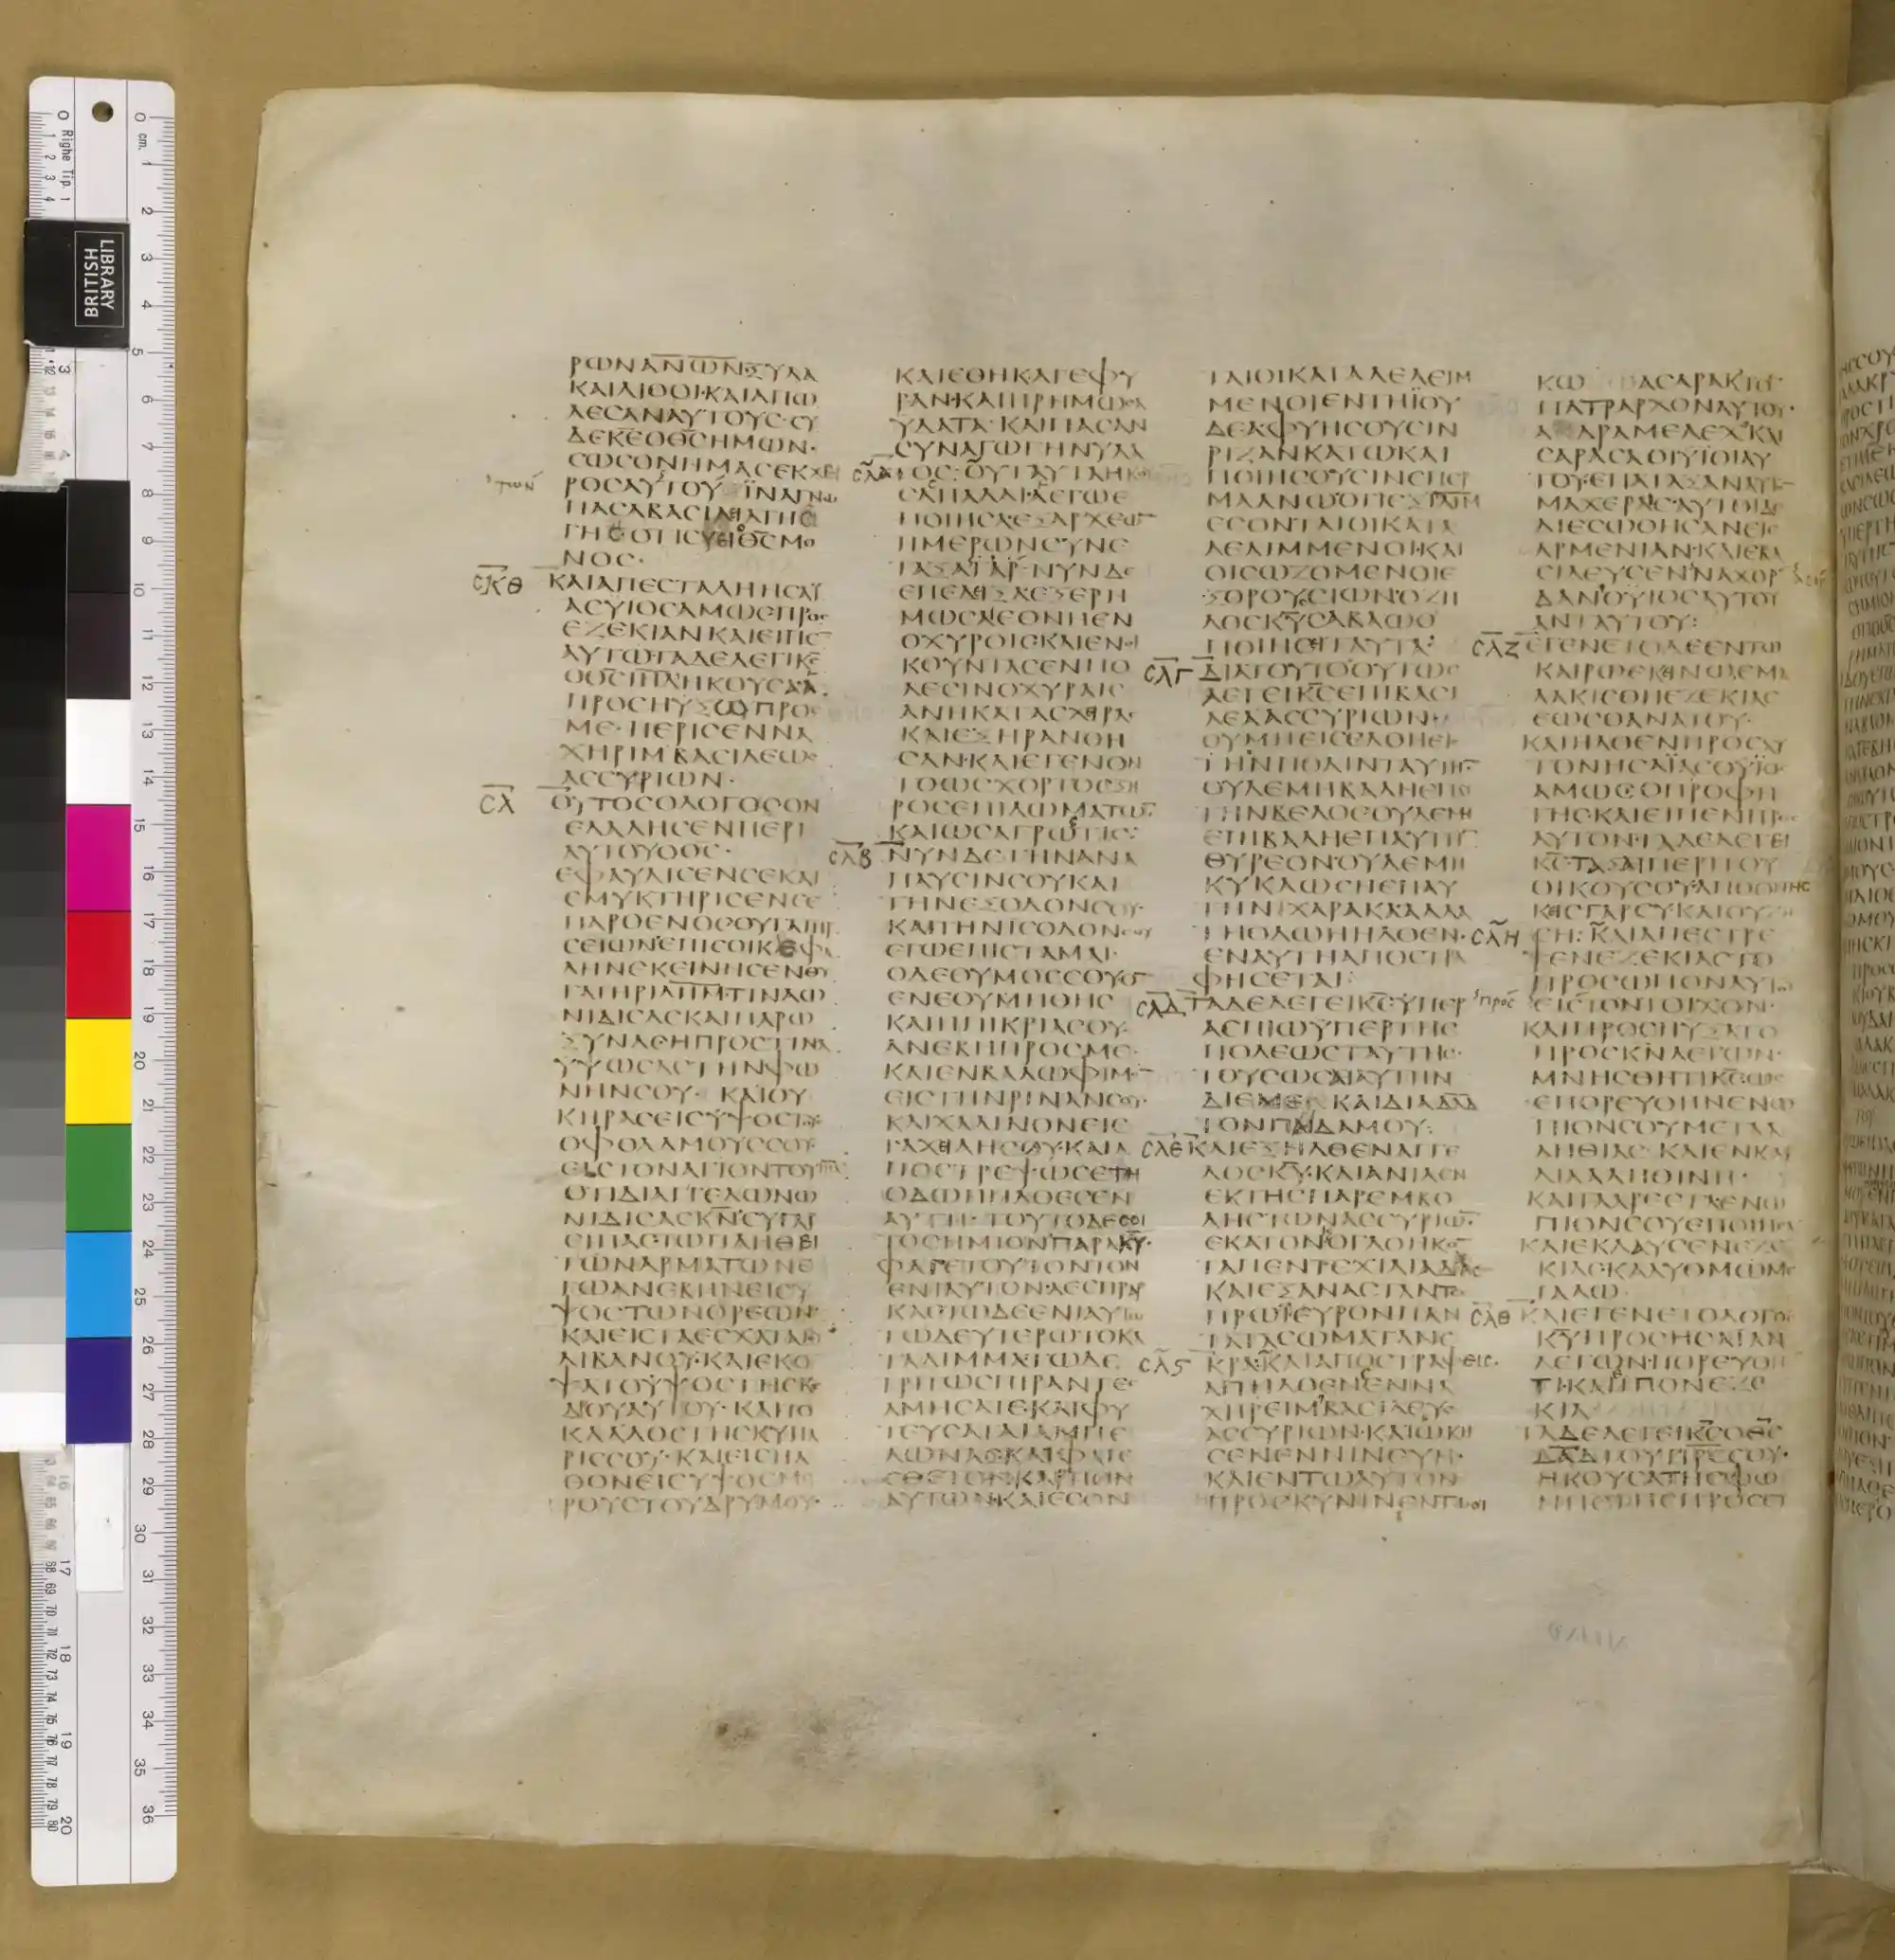 ΡΩΝΑΝΩΝΞΥΛΑ
ΚΑΙΛΙΘΟΙ·ΚΑΙΑΠΩ
ΛΕϹΑΝΑΥΤΟΥϹ·ϹΥ
ΔΕΚ̅Ε̅ΟΘ̅Ϲ̅ΗΜΩΝ·
ϹΩϹΟΝΗΜΑϹΕΚΧΕΙ
ΡΟϹΑΥΤΟΥ ΪΝΑΓΝΩ
ΠΑϹΑΒΑϹΙΛΙΑΤΗϹ
ΓΗϹΟΤΙϹΥΕΙΟΘ̅Ϲ̅ΜΟ
ΝΟϹ·
Ϲ̅Κ̅Θ̅ ΚΑΙΑΠΕϹΤΑΛΗΗϹΑΪ
ΑϹΥΙΟϹΑΜΩϹΠΡΟϹ
ΕΖΕΚΙΑΝΚΑΙΕΙΠΕ
ΑΥΤΩΤΑΔΕΛΕΓΙΚ̅Ϲ̅
ΟΘ̅Ϲ̅Ι̅Η̅Λ̅ΗΚΟΥϹΑΑ
ΠΡΟϹΗΥΞΩΠΡΟϹ
ΜΕ·ΠΕΡΙϹΕΝΝΑ
ΧΗΡΙΜΒΑϹΙΛΕΩϹ
ΑϹϹΥΡΙΩΝ·
Ϲ̅Λ̅ ΟΥΤΟϹΟΛΟΓΟϹΟΝ
ΕΛΑΛΗϹΕΝΠΕΡΙ
ΑΥΤΟΥΟΘϹ·
ΕΦΑΥΛΙϹΕΝϹΕΚΑΙ
ΕΜΥΚΤΗΡΙϹΕΝϹΕ
ΠΑΡΘΕΝΟϹΘΥΓΑΤΗΡ
ϹΕΙΩΝ·ΕΠΙϹΟΙΚΕΦΑ
ΛΗΝΕΚΕΙΝΗϹΕΝΘΥ
ΓΑΤΗΡΙΛΗΜ·ΤΙΝΑΩ
ΝΙΔΙϹΑϹΚΑΙΠΑΡΩ
ΞΥΝΑϹΗΠΡΟϹΤΙΝΑ
ΥΨΩϹΑϹΤΗΝΦΩ
ΝΗΝϹΟΥ· ΚΑΙΟΥ
ΚΗΡΑϹΕΙϹΥΨΟϹΤΟΥϹ
ΟΦΘΑΛΜΟΥϹϹΟΥ
ΕΙϹΤΟΝΑΓΙΟΝΤΟΥΙΗΛ
ΟΤΙΔΙΑΓΓΕΛΩΝΩ
ΝΙΔΙϹΑϹΚ̅Ν̅ϹΥΓΑΡ
ΕΙΠΑϹΤΩΠΛΗΘΕΙ
ΤΩΝΑΡΜΑΤΩΝΕ
ΓΩΑΝΕΒΗΝΕΙϹΥ
ΨΟϹΤΩΝΟΡΕΩΝ
ΚΑΙΕΙϹΤΑΕϹΧΑΤΑΤΟΥ
ΛΙΒΑΝΟΥ·ΚΑΙΕΚΟ
ΨΑΤΟΥΨΟϹΤΗϹΚΕ
ΔΡΟΥΑΥΤΟΥ·ΚΑΙΤΟ
ΚΑΛΛΟϹΤΗϹΚΥΠΑ
ΡΙϹϹΟΥ·ΚΑΙΕΙϹΗΛ
ΘΟΝΕΙϹΥΨΟϹΜΕ
ΡΟΥϹΤΟΥΔΡΥΜΟΥ·
ΚΑΙΕΘΗΚΑΓΕΦΥ
ΡΑΝ·ΚΑΙΗΡΗΜΩϹΑ
ΥΔΑΤΑ·ΚΑΙΠΑϹΑΝ
ϹΥΝΑΓΩΓΗΝΥΔΑ
Ϲ̅Λ̅Α̅ ΤΟϹ:ΟΥΤΑΥΤΑΗΚΟΥ
ϹΑϹΠΑΛΑΙ·ΑΕΓΩΕ
ΠΟΙΗϹΑ·ΕΞΑΡΧΕΩΝ
ΗΜΕΡΩΝϹΥΝΕ
ΤΑΞΑΓΑΡ·ΝΥΝΔΕ
ΕΠΕΔΙΞΑΕΞΕΡΗ
ΜΩϹΑΙΕΘΝΗΕΝ
ΟΧΥΡΟΙϹ·ΚΑΙΕΝΟΙ
ΚΟΥΝΤΑϹΕΝΠΟ
ΛΕϹΙΝΟΧΥΡΑΙϹ
ΑΝΗΚΑΤΑϹΧΙΡΑϹ
ΚΑΙΕΞΗΡΑΝΘΗ
ϹΑΝ·ΚΑΙΕΓΕΝΟΝ
ΤΟΩϹΧΟΡΤΟϹΞΗ
ΡΟϹΕΠΙΔΩΜΑΤΩΝ
ΚΑΙΩϹΑΓΡΩϹΤΙϹ:
Ϲ̅Λ̅Β̅ ΝΥΝΔΕΤΗΝΑΝΑ
ΠΑΥϹΙΝϹΟΥΚΑΙ
ΤΗΝΕΞΟΔΟΝϹΟΥ·
ΚΑΙΤΗΝΙϹΟΔΟΝϹΟΥ
ΕΓΩΕΠΙϹΤΑΜΑΙ·
ΟΔΕΘΥΜΟϹϹΟΥΟΝ
ΕΝΕΘΥΜΗΘΗϹ
ΚΑΙΗΠΙΚΡΙΑϹΟΥ
ΑΝΕΒΗΠΡΟϹΜΕ·
ΚΑΙΕΝΒΑΛΩΦΙΜΟΝ
ΕΙϹΤΗΝΡΙΝΑΝϹΟΥ
ΚΑΙΧΑΛΙΝΟΝΕΙϹ
ΤΑΧΙΛΗϹΟΥ·ΚΑΙΑ
ΠΟϹΤΡΕΨΩϹΕΤΗ
ΟΔΩΗΗΛΘΕϹΕΝ
ΑΥΤΗ· ΤΟΥΤΟΔΕϹΟΙ
ΤΟϹΗΜΙΟΝΠΑΡΑΚ̅Υ̅·
ΦΑΓΕΤΟΥΤΟΝΤΟΝ
ΕΝΙΑΥΤΟΝ·ΑΕϹΠΑΡ
ΚΑϹ·ΤΩΔΕΕΝΙΑΥΤΩ
ΤΩΔΕΥΤΕΡΩΤΟΚΑ
ΤΑΛΙΜΜΑ·ΤΩΔΕ
ΤΡΙΤΩϹΠΙΡΑΝΤΕϹ
ΑΜΗϹΑΤΕ·ΚΑΙΦΥ
ΤΕΥϹΑΤΑΙΑΜΠΕ
ΛΩΝΑϹ·ΚΑΙΦΑΓΕ
ϹΘΕΤΟΝΚΑΡΠΟΝ
ΑΥΤΩΝ·ΚΑΙΕϹΟΝ
ΤΑΙΟΙΚΑΤΑΛΕΛΕΙΜ
ΜΕΝΟΙΕΝΤΗΪΟΥ
ΔΕΑΦΥΗϹΟΥϹΙΝ
ΡΙΖΑΝΚΑΤΩΚΑΙ
ΠΟΙΗϹΟΥϹΙΝϹΠΕΡ
ΜΑΑΝΩΟΤΙΕΞΙΛΗΜ
ΕϹΟΝΤΑΙΟΙΚΑΤΑ
ΛΕΛΙΜΜΕΝΟΙ·ΚΑΙ
ΟΙϹΩΖΟΜΕΝΟΙΕ
ΞΟΡΟΥϹΙΩΝ·ΟΖΗ
ΛΟϹΚ̅Υ̅ϹΑΒΑΩΘ
ΠΟΙΗϹΙΤΑΥΤΑ:
Ϲ̅Λ̅Γ̅ ΔΙΑΤΟΥΤΟΟΥΤΩϹ
ΛΕΓΕΙΚ̅Ϲ̅ΕΠΙΒΑϹΙ
ΛΕΑΑϹϹΥΡΙΩΝ·
ΟΥΜΗΕΙϹΕΛΘΗΕΙϹ
ΤΗΝΠΟΛΙΝΤΑΥΤΗΝ
ΟΥΔΕΜΗΒΑΛΗΕΠΑΥ
ΤΗΝΒΕΛΟϹΟΥΔΕΜΗ
ΕΠΙΒΑΛΗΕΠΑΥΤΗΝ
ΘΥΡΕΟΝ·ΟΥΔΕΜΗ
ΚΥΚΛΩϹΗΕΠΑΥ
ΤΗΝΧΑΡΑΚΑΑΛΛΑ
ΤΗΟΔΩΗΗΛΘΕΝ·
ΕΝΑΥΤΗΑΠΟϹΤΡΑ
ΦΗϹΕΤΑΙ:
Ϲ̅Λ̅Δ̅ ΤΑΔΕΛΕΓΕΙΚ̅Ϲ̅ΥΠΕΡ
ΑϹΠΙΩΥΠΕΡΤΗϹ
ΠΟΛΕΩϹΤΑΥΤΗϹ·
ΤΟΥϹΩϹΑΙΑΥΤΗΝ
ΔΙΕΜΕ ΚΑΙΔΙΑΔ̅Α̅Δ̅
ΤΟΝΠΑΙΔΑΜΟΥ:
Ϲ̅Λ̅Ε̅ ΚΑΙΕΞΗΛΘΕΝΑΓΓΕ
ΛΟϹΚ̅Υ̅·ΚΑΙΑΝΙΛΕΝ
ΕΚΤΗϹΠΑΡΕΜΒΟ
ΛΗϹΤΩΝΑϹϹΥΡΙΩΝ
ΕΚΑΤΟΝΟΓΔΟΗΚΟΝ
ΤΑΠΕΝΤΕΧΙΛΙΑΔΑϹ
ΚΑΙΕΞΑΝΑϹΤΑΝΤΕϹ
ΠΡΩΪΕΥΡΟΝΠΑΝ
ΤΑΤΑϹΩΜΑΤΑΝΕ
Ϲ̅Λ̅Ϛ̅ ΚΡΑ:ΚΑΙΑΠΟϹΤΡΑΦΕΙϹ·
ΑΠΗΛΘΕΝϹΕΝΝΑ
ΧΗΡΕΙΜΒΑϹΙΛΕΥϹ
ΑϹϹΥΡΙΩΝ·ΚΑΙΩΚΗ
ϹΕΝΕΝΝΙΝΕΥΗ·
ΚΑΙΕΝΤΩΑΥΤΟΝ
ΠΡΟϹΚΥΝΙΝΕΝΤΩΟΙ
ΚΩ ΑϹΑΡΑΚΤΟΝ
ΠΑΤΡΑΡΧΟΝΑΥΤΟΥ·
Α ΑΡΑΜΕΛΕΧΚΑΙ
ϹΑΡΑϹΑΟΙΥΪΟΙΑΥ
ΤΟΥ·ΕΠΑΤΑΞΑΝΑΥΤΟΝ
ΜΑΧΕΡΑΙϹ·ΑΥΤΟΙΔΕ
ΔΙΕϹΩΘΗϹΑΝΕΙϹ
ΑΡΜΕΝΙΑΝ·ΚΑΙΕΒΑ
ϹΙΛΕΥϹΕΝΝΑΧΟΡ
ΔΑΝ·ΟΥΙΟϹΑΥΤΟΥ
ΑΝΤΑΥΤΟΥ:
Ϲ̅Λ̅Ζ̅ ΕΓΕΝΕΤΟΔΕΕΝΤΩ
ΚΑΙΡΩΕΚΙΝΩΕΜΑ
ΛΑΚΙϹΘΗΕΖΕΚΙΑϹ
ΕΩϹΘΑΝΑΤΟΥ·
ΚΑΙΗΛΘΕΝΠΡΟϹΑΥ
ΤΟΝΗϹΑΪΑϹΟΥΪΟϹ
ΑΜΩϹΟΠΡΟΦΗ
ΤΗϹΚΑΙΕΙΠΕΝΠΡΟϹ
ΑΥΤΟΝ·ΤΑΔΕΛΕΓΕΙ
Κ̅Ϲ̅ΤΑΞΑΙΠΕΡΙΤΟΥ
ΟΙΚΟΥϹΟΥ·ΑΠΟΘΝΗϹ
ΚΙϹΓΑΡϹΥ·ΚΑΙΟΥΖΗ
Ϲ̅Λ̅Η̅ ϹΗ:ΚΑΙΑΠΕϹΤΡΕ
ΨΕΝΕΖΕΚΙΑϹΤΟ
ΠΡΟϹΩΠΟΝΑΥΤΟΥ
ΠΡΟϹ ΕΙϹΤΟΝΤΟΙΧΟΝ·
ΚΑΙΠΡΟϹΗΥΞΑΤΟ
ΠΡΟϹΚ̅Ν̅ΛΕΓΩΝ·
ΜΝΗϹΘΗΤΙΚ̅Ε̅ΩϹ
ΕΠΟΡΕΥΘΗΝΕΝΩ
ΠΙΟΝϹΟΥΜΕΤΑΑ
ΛΗΘΙΑϹ· ΚΑΙΕΝΚΑΡ
ΔΙΑΑΛΗΘΙΝΗ·
ΚΑΙΤΑΑΡΕϹΤΑΕΝΩ
ΠΙΟΝϹΟΥΕΠΟΙΗϹΑ
ΚΑΙΕΚΛΑΥϹΕΝΕΖΕ
ΚΙΑϹ·ΚΛΑΥΘΜΩΜΕ
ΓΑΛΩ·
Ϲ̅Λ̅Θ̅ ΚΑΙΕΓΕΝΕΤΟΛΟΓΟϹ
Κ̅Υ̅ΠΡΟϹΗϹΑΪΑΝ
ΛΕΓΩΝ·ΠΟΡΕΥΘΗ
ΤΙ·ΚΑΙΕΙΠΟΝΕΖΕ
ΚΙΑ
ΤΑΔΕΛΕΓΕΙΚ̅Ϲ̅ΟΘ̅Ϲ̅
Δ̅Α̅Δ̅ΤΟΥΠ̅Ρ̅Ϲ̅ϹΟΥ·
ΗΚΟΥϹΑΤΗϹΦΩ
ΝΗϹΤΗϹΠΡΟϹΕΥ